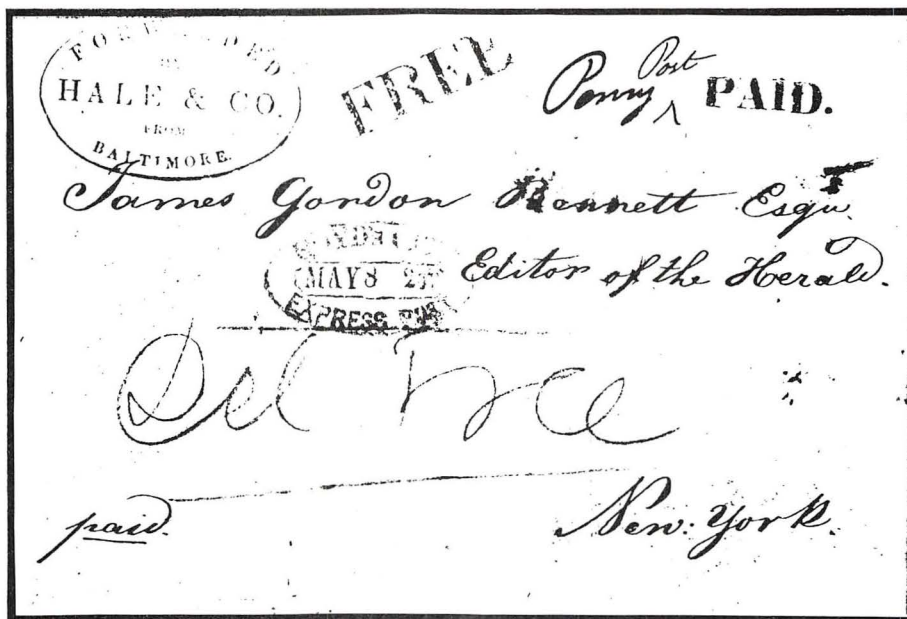 FORWARDED
BY
HALE & CO.
FROM
BALTIMORE.
FREE
Penny Post PAID.
James Gordon Bennett Esqu.
Editor of the Herald.
MAY 8
EXPRESS
Del
paid.
New York.